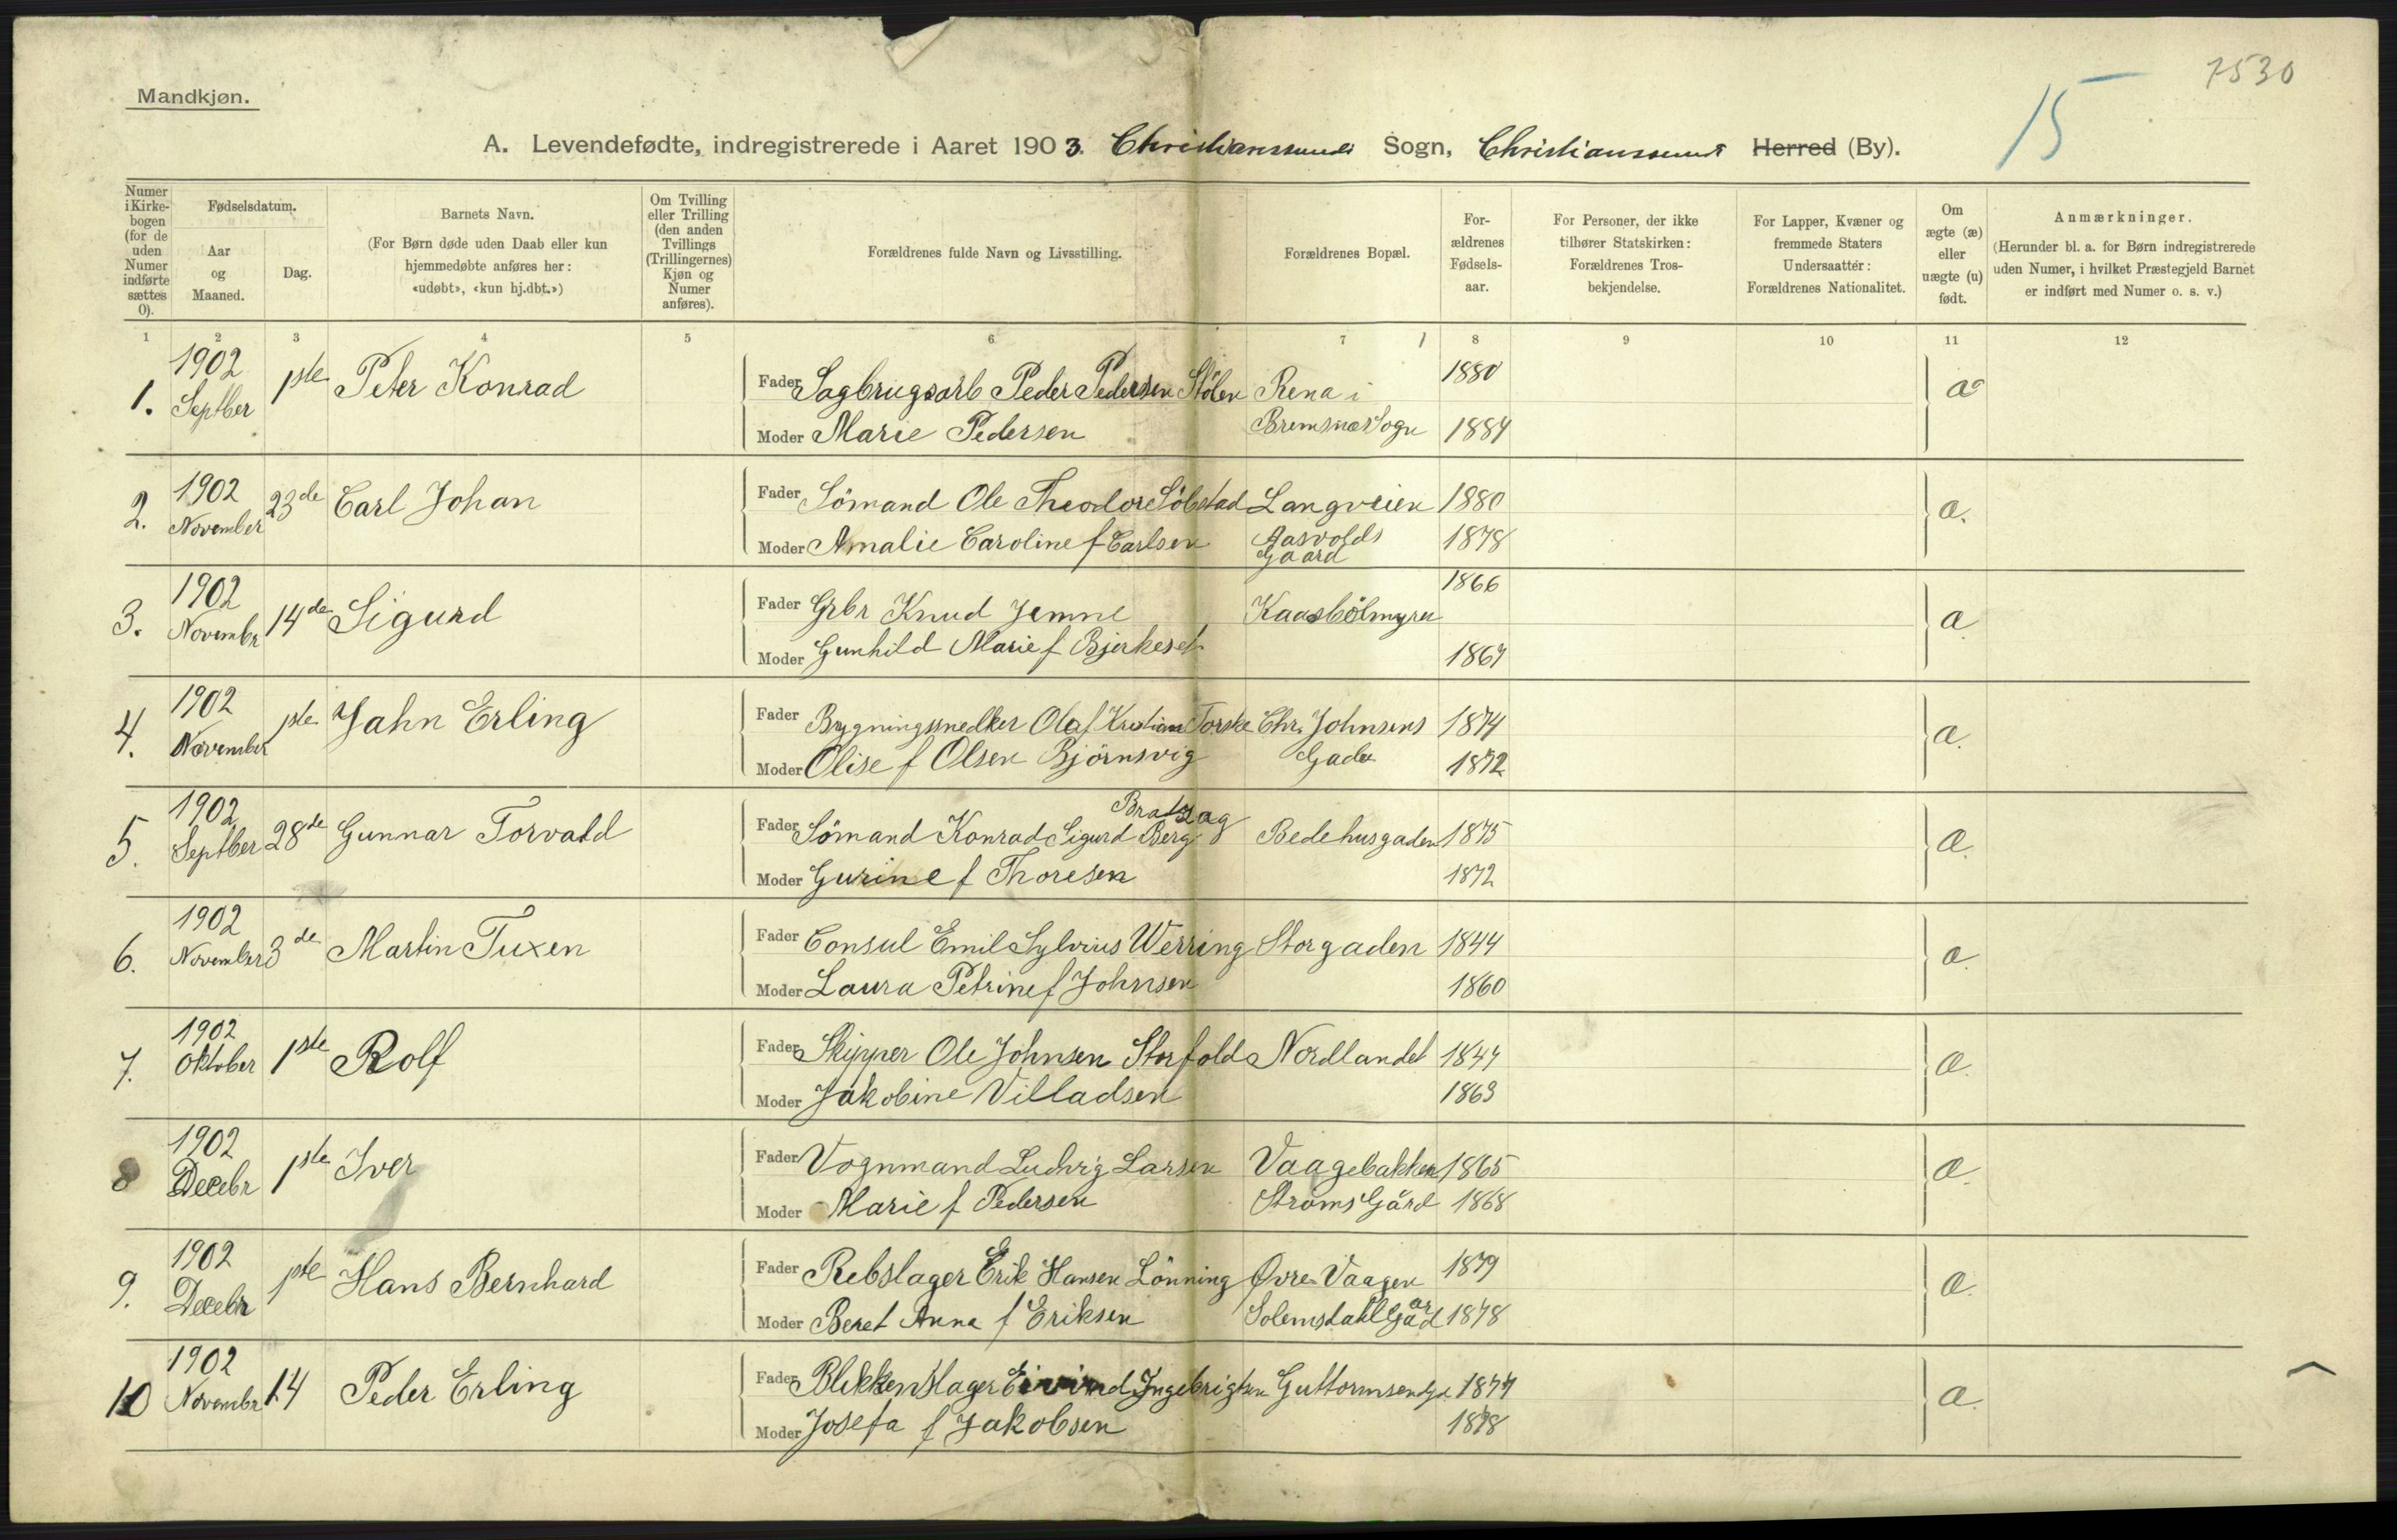 7530
15
Mandkjøn.
A. Levendefødte, indregistrerede i Aaret 1903. Christianssunds Sogn, Christianssund Herred (By).
Numer i Kirkebogen (for de uden Numer indførte sættes 0).
Fødselsdatum.
Aar og Maaned.
Dag.
Barnets Navn.
(For Børn døde uden Daab eller kun hjemmedøbte anføres her: «udøbt», «kun hj.dbt.»)
Om Tvilling eller Trilling (den anden Tvillings (Trillingernes) Kjøn og Numer anføres).
Forældrenes fulde Navn og Livsstilling.
Forældrenes Bopæl.
Forældrenes Fødselsaar.
For Personer, der ikke tilhører Statskirken: Forældrenes Trosbekjendelse.
For Lapper, Kvæner og fremmede Staters Undersaatter: Forældrenes Nationalitet.
Om ægte (æ) eller uægte (u) født.
Anmærkninger.
(Herunder bl. a. for Børn indregistrerede uden Numer, i hvilket Præstegjeld Barnet er indført med Numer o. s. v.)
1 2 3 4 5 6 7 8 9 10 11 12
1. 1902 Septber 1ste Peter Konrad Fader Sagbrugsarb Peder Pedersen Stölen Rena i 1880 æ
Moder Marie Pedersen Bremsnæs Sogn 1884
2. 1902 November 23de Carl Johan Fader Sömand Ole Theodor Söbstad Langveien 1880 æ.
Moder Amalie Caroline f Carlsen Aasvolds Gaard 1878
3. 1902 Novembr 14de Sigurd Fader Grbr Knud Jemne Kaasbölmyra 1866 æ
Moder Gunhild Marie f Bjerkeset 1867
4. 1902 November 1ste Jahn Erling Fader Bygningssnedker Olaf Kristian Torske Chr. Johnsens 1874 æ.
Moder Olise f Olsen Björnsvig Gade 1872
5. 1902 Septber 28de Gunnar Torvald Fader Sömand Konrad Sigurd Berg Bedehusgaden 1875 æ.
Moder Gurine f Thoresen 1872
6. 1902 November 3de Martin Tuxen Fader Consul Emil Sylvius Werring Storgaden 1844 æ.
Moder Laura Petrine f Johnsen 1860
7. 1902 Oktober 1ste Rolf Fader Skipper Ole Johnsen Storfold Nordlandet 1844 æ.
Moder Jakobine Villadsen 1863
8 1902 Decebr 1ste Iver Fader Vognmand Ludvig Larsen Vaagebakken 1865 æ.
Moder Marie f Pedersen Ströms Gård 1868
9. 1902 Decebr 1ste Hans Bernhard Fader Rebslager Erik Hansen Lönning Øvre Vaagen 1879 æ.
Moder Beret Anna f Eriksen 1878
10 1902 Novembr 14 Peder Erling Fader Blikkenslager Eivind Ingebrigtsen Guttormsengd 1877 æ.
Moder Josefa f Jakobsen 1878